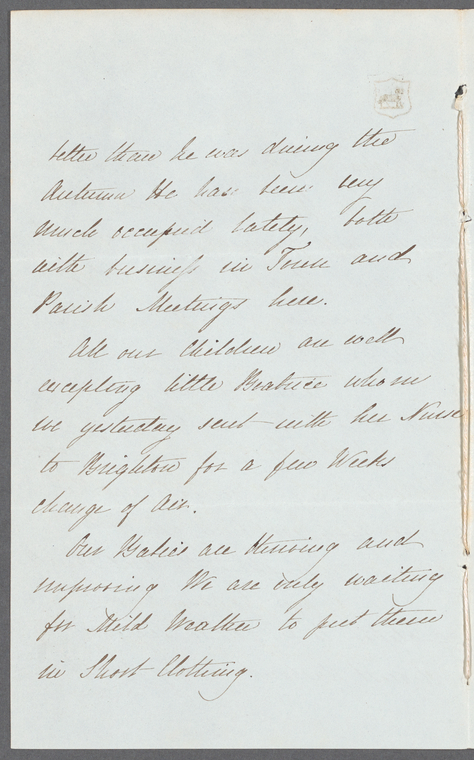 better than he was during the
Autumn He has been very
much occupied lately, both
with business in Town and
Parish Meetings here.
All our Children are well
excepting little Beatrice whom
we yesterday sent with her Nurse
to Brighton for a few Weeks
change of Air.
Our Babies are thriving and
improving We are only waiting
for Mild Weather to put them
in Short Clothing.